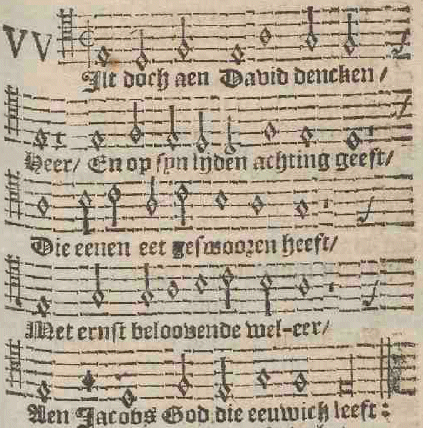 VVIlt doch aen David dencken /
Heer / En op syn lyden achting geeft /
Die eenen eet geswooren heeft /
Met ernst beloovende wel-eer /
Aen Jacobs God die eeuwich leeft :